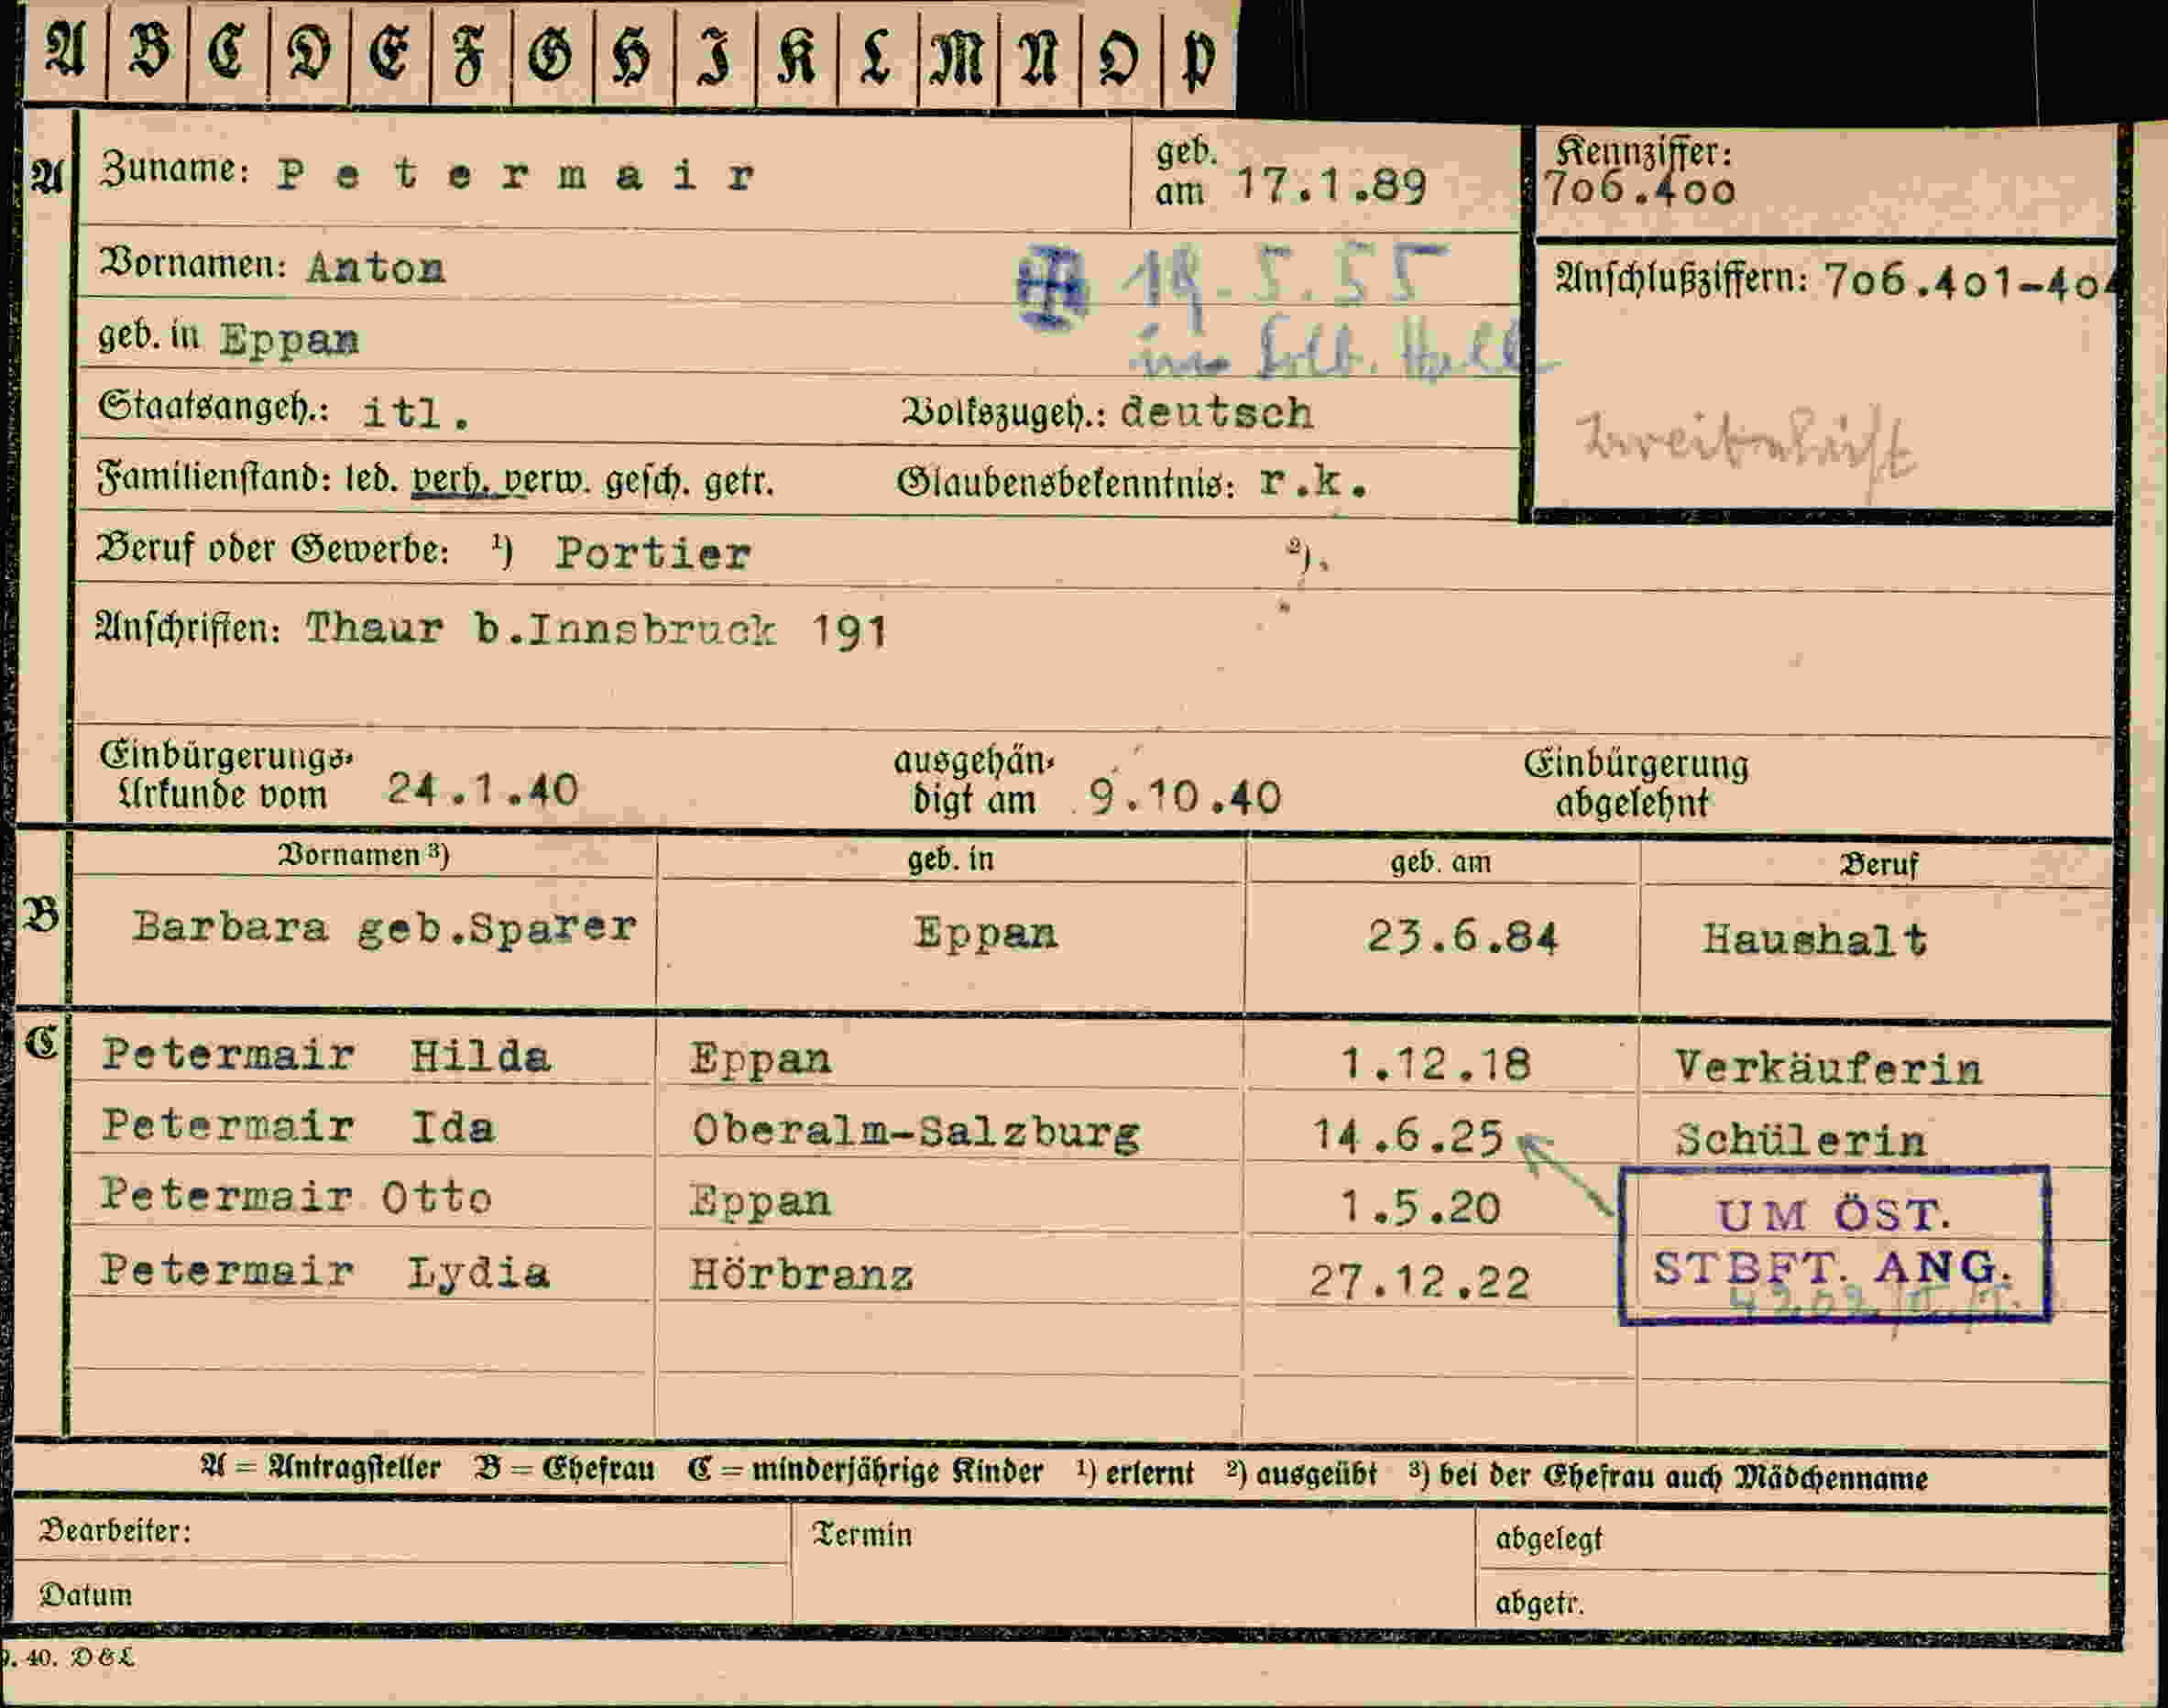 A B C D E F G H I K L M N O P
A Zuname: Petermair geb. am 17.1.89 Kennziffer: 706.400
Vornamen: Anton 19.5.55 Anschlußziffern: 706.401-404
geb. in Eppan Hall
Staatsangeh.: itl. Volkszugeh.: deutsch
Familienstand: led. verh. verw. gesch. getr. Glaubensbekenntnis: r.k.
Beruf oder Gewerbe: ¹) Portier ²).
Anschriften: Thaur b.Innsbruck 191
Einbürgerungs-Urkunde vom 24.1.40 ausgehändigt am 9.10.40 Einbürgerung abgelehnt
Vornamen ³) geb. in geb. am Beruf
B Barbara geb.Sparer Eppan 23.6.84 Haushalt
C Petermair Hilda Eppan 1.12.18 Verkäuferin
Petermair Ida Oberalm-Salzburg 14.6.25 Schülerin
Petermair Otto Eppan 1.5.20
UM ÖST.
STBFT. ANG.
Petermair Lydia Hörbranz 27.12.22
A = Antragsteller B = Ehefrau C = minderjährige Kinder ¹) erlernt ²) ausgeübt ³) bei der Ehefrau auch Mädchenname
Bearbeiter: Termin abgelegt
Datum abgetr.
9. 40. D&L